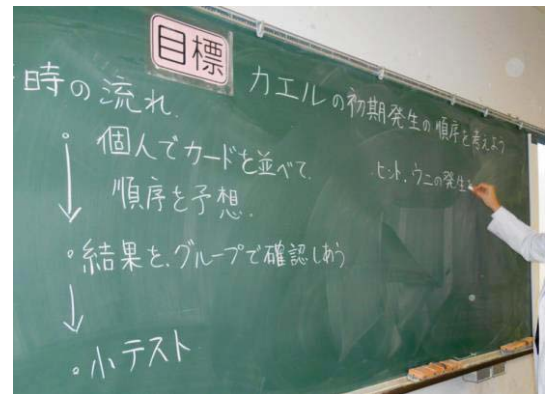 目標
カエルの初期発生の順序を考えよう
ヒント、ウニの発生
時の流れ.
個人でカードを並べて
順序を予想.
結果を、グループで確認しあう
小テスト